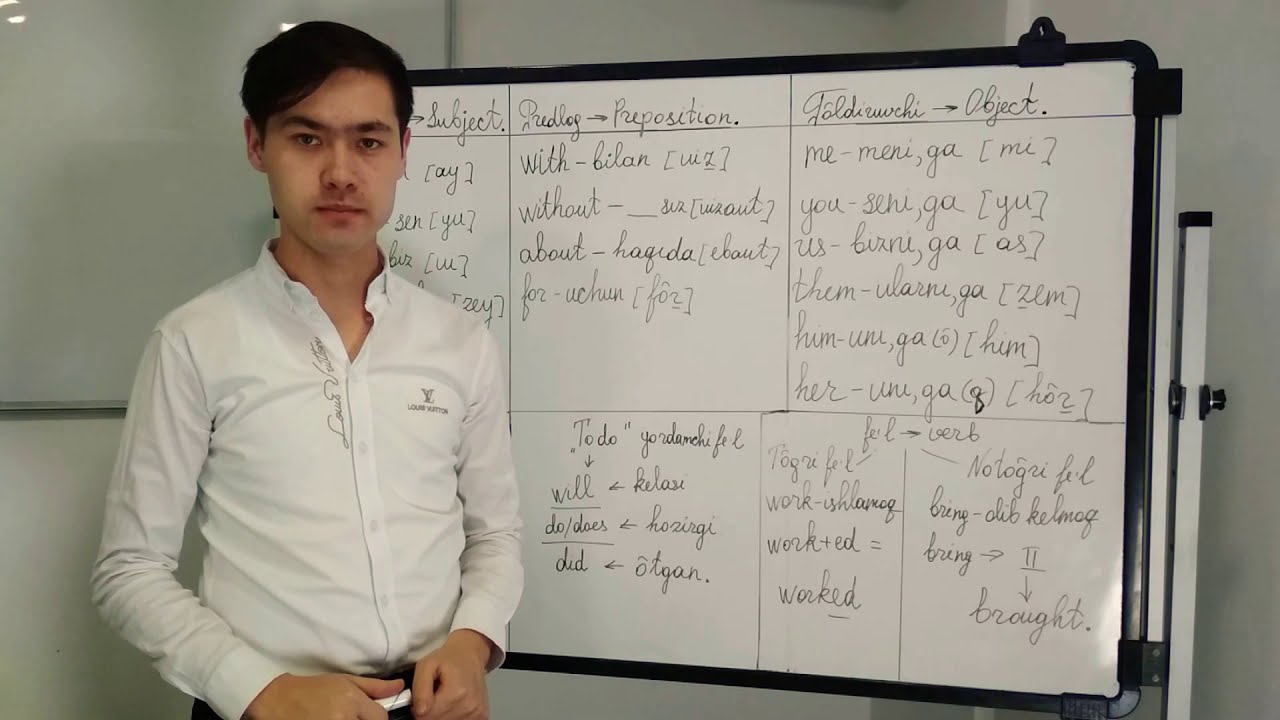 →Subject.
[ay]
sen [yu]
biz [ui]
[zey]
Predlog → Preposition.
with - bilan [uiz]
without - __ siz [uizaut]
about - haqida [ebaut]
for - uchun [fôr]
Tôldiruvchi → Object.
me - meni, ga [mi]
you - seni, ga [yu]
us - bizni, ga [as]
them - ularni, ga [zem]
him - uni, ga (ô) [him]
her - uni, ga (q) [hôr]
"To do" yordamchi fe'l
↓
will ← kelasi
do/does ← hozirgi
did ← ôtgan.
fe'l → verb
Tôg'ri fe'l
work - ishlamoq
work+ed =
worked
Notôg'ri fe'l
bring - olib kelmoq
bring → II
↓
brought.
Louis Vuitton
LV
LOUIS VUITTON